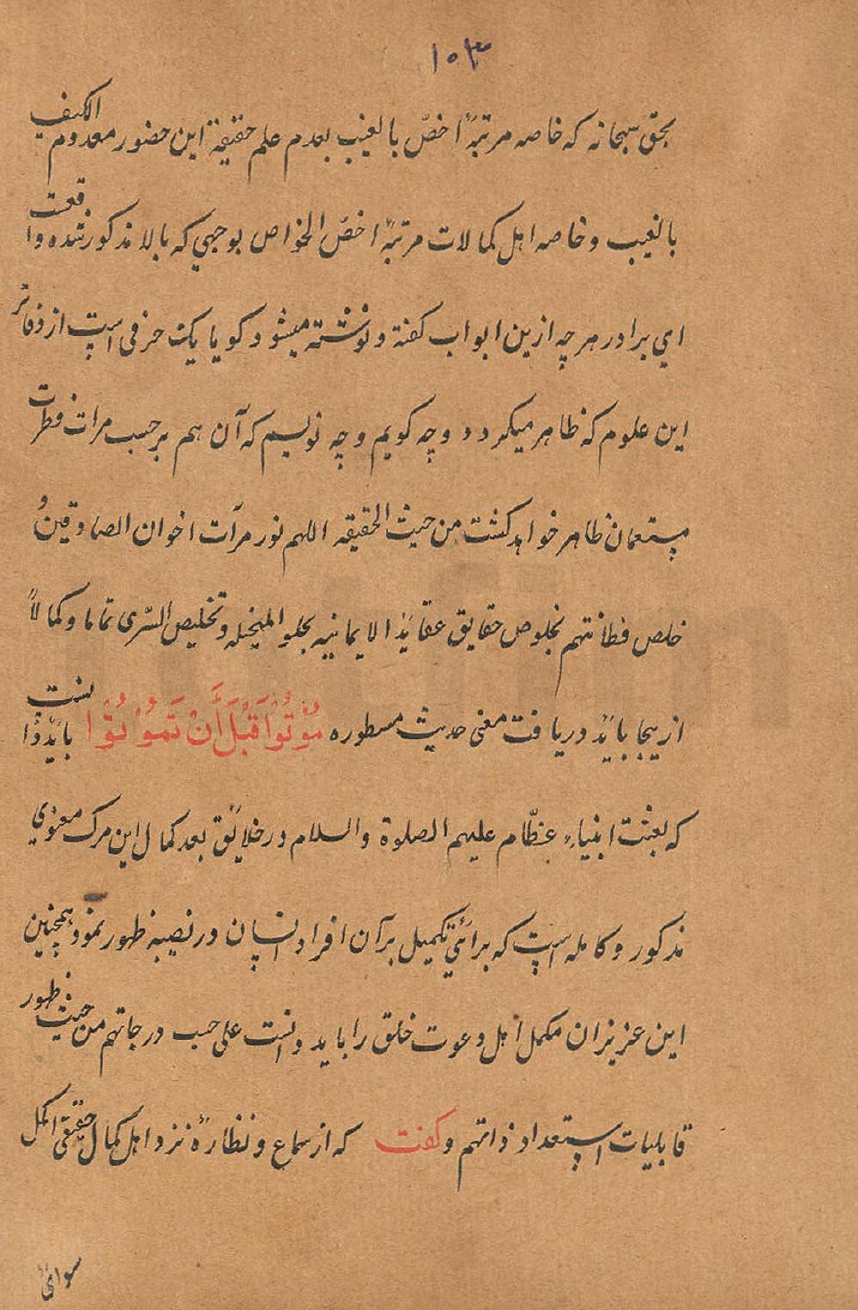 ۱۰۳
بحق سبحانه که خاصه مرتبهٔ اخصّ بالغیب بعدم علم حقیقة این حضور معدوم الکیف
بالغیب و خاصه اهل کمالات مرتبهٔ اخصّ الخواص بوجهی که بالا مذکور شده واقعت
ای برادر هر چه ازین ابواب کفته و نوشته میشود کویا یک حرفی است از دفاتر
این علوم که ظاهر میکردد و چه کویم و چه نویسم که آن هم بر حسب مرات فطرت
مستعمان ظاهر خواهد کشت من حیث الحقیقه اللهم نور مرآت اخوان الصادقین و
خلص فطانتهم بخلوص حقایق عقایدٔ الایمانیه بجلو المنجله و تخلیص السّری تماما و کمالاً
ازیجا بایدٔ دریافت معنی حدیث مسطوره مُوْتُوْا قَبْلَ أَنْ تَمُوْتُوْا بایدٔ دانست
که بعثت انبیاء عظّام علیهم الصلوة والسلام در خلایٔق بعد کمال این مرک معنوی
مذکور و کامله است که برایٔی تکمیل بر آن افراد انسان در نصیبه ظهور نمود همچنین
این عزیزان مکمل اهل دعوت خلق را باید دانست علی حسب درجاتهم من حیث ظهور
قابلیات استعداد ذاتهم و کفت که از سماع و نظارهٔ نزد اهل کمال حقیقی اکمل
سوای